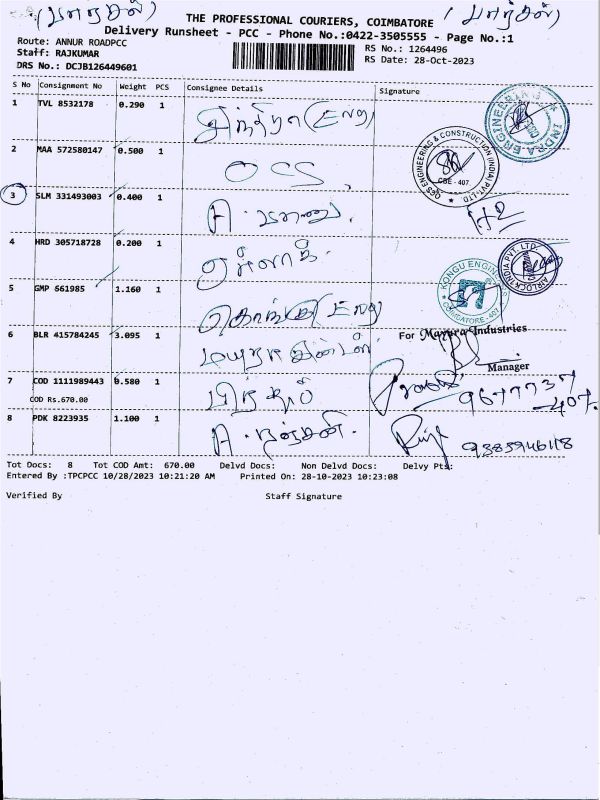 (பார்சல்) THE PROFESSIONAL COURIERS, COIMBATORE (பார்சல்)
Delivery Runsheet - PCC - Phone No.:0422-3505555 - Page No.:1
Route: ANNUR ROADPCC RS No.: 1264496
Staff: RAJKUMAR RS Date: 28-Oct-2023
DRS No.: DCJB126449601
S No Consignment No Weight PCS Consignee Details Signature
1 TVL 8532178 0.290 1 இந்திரா (Eng) INDRA ENGINEERING
2 MAA 572580147 0.500 1 OCS QES ENGINEERING & CONSTRUCTION (INDIA) PVT. LTD CBE - 407
3 SLM 331493003 0.400 1 A.
4 HRD 305718728 0.200 1 ஏர்லாக் AIRLOCK INDIA PVT. LTD.
5 GMP 661985 1.160 1 கொங்கு (Eng) KONGU ENGINEERS COIMBATORE - 407
6 BLR 415784245 3.095 1 மயூரா இன்டஸ் For Mayura Industries
Manager
7 COD 1111989443 0.580 1 9677737
COD Rs.670.00 407.
8 PDK 8223935 1.100 1 A.
Tot Docs: 8 Tot COD Amt: 670.00 Delvd Docs: Non Delvd Docs: Delvy Pts:
Entered By :TPCPCC 10/28/2023 10:21:20 AM Printed On: 28-10-2023 10:23:08
Verified By Staff Signature